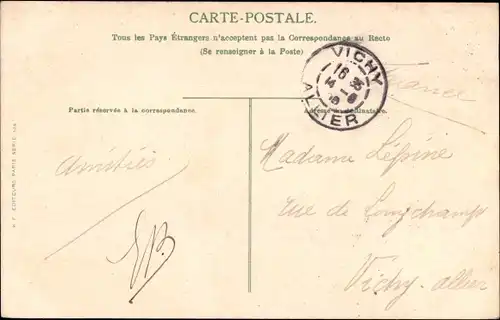 CARTE-POSTALE.
Tous les Pays Étrangers n'acceptent pas la Correspondance au Recto
(Se renseigner à la Poste)
VICHY
ALLIER
France
Partie réservée à la correspondance.
Adresse du destinataire.
Amitiés
Madame Lépine
rue de Longchamps
Vichy - allier